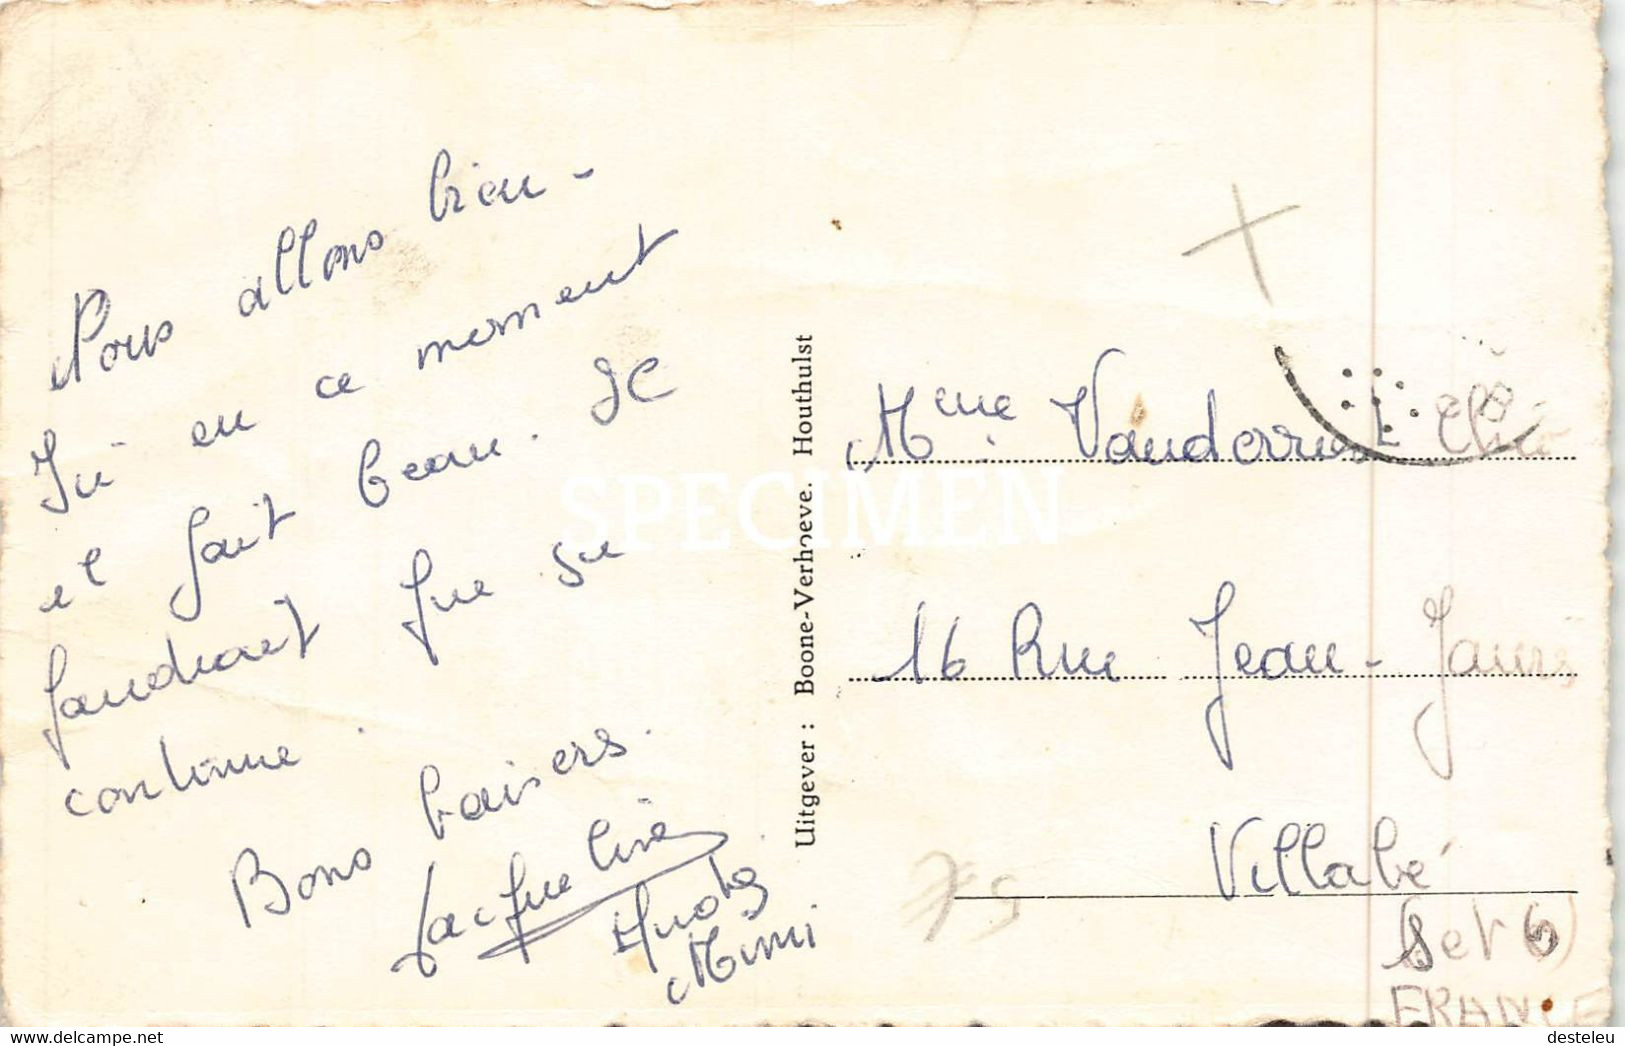 Nous allons bien -
Ici en ce moment
il fait beau. Il
faudrait que sa
continue.
Bons baisers.
Jacqueline
Mimi
Uitgever : Boone-Verhoeve. Houthulst
Mme
16 Rue Jean-Jaurès
Villabé
(Set O)
FRANCE
75
SPECIMEN
https://www.delcampe.net
desteleu